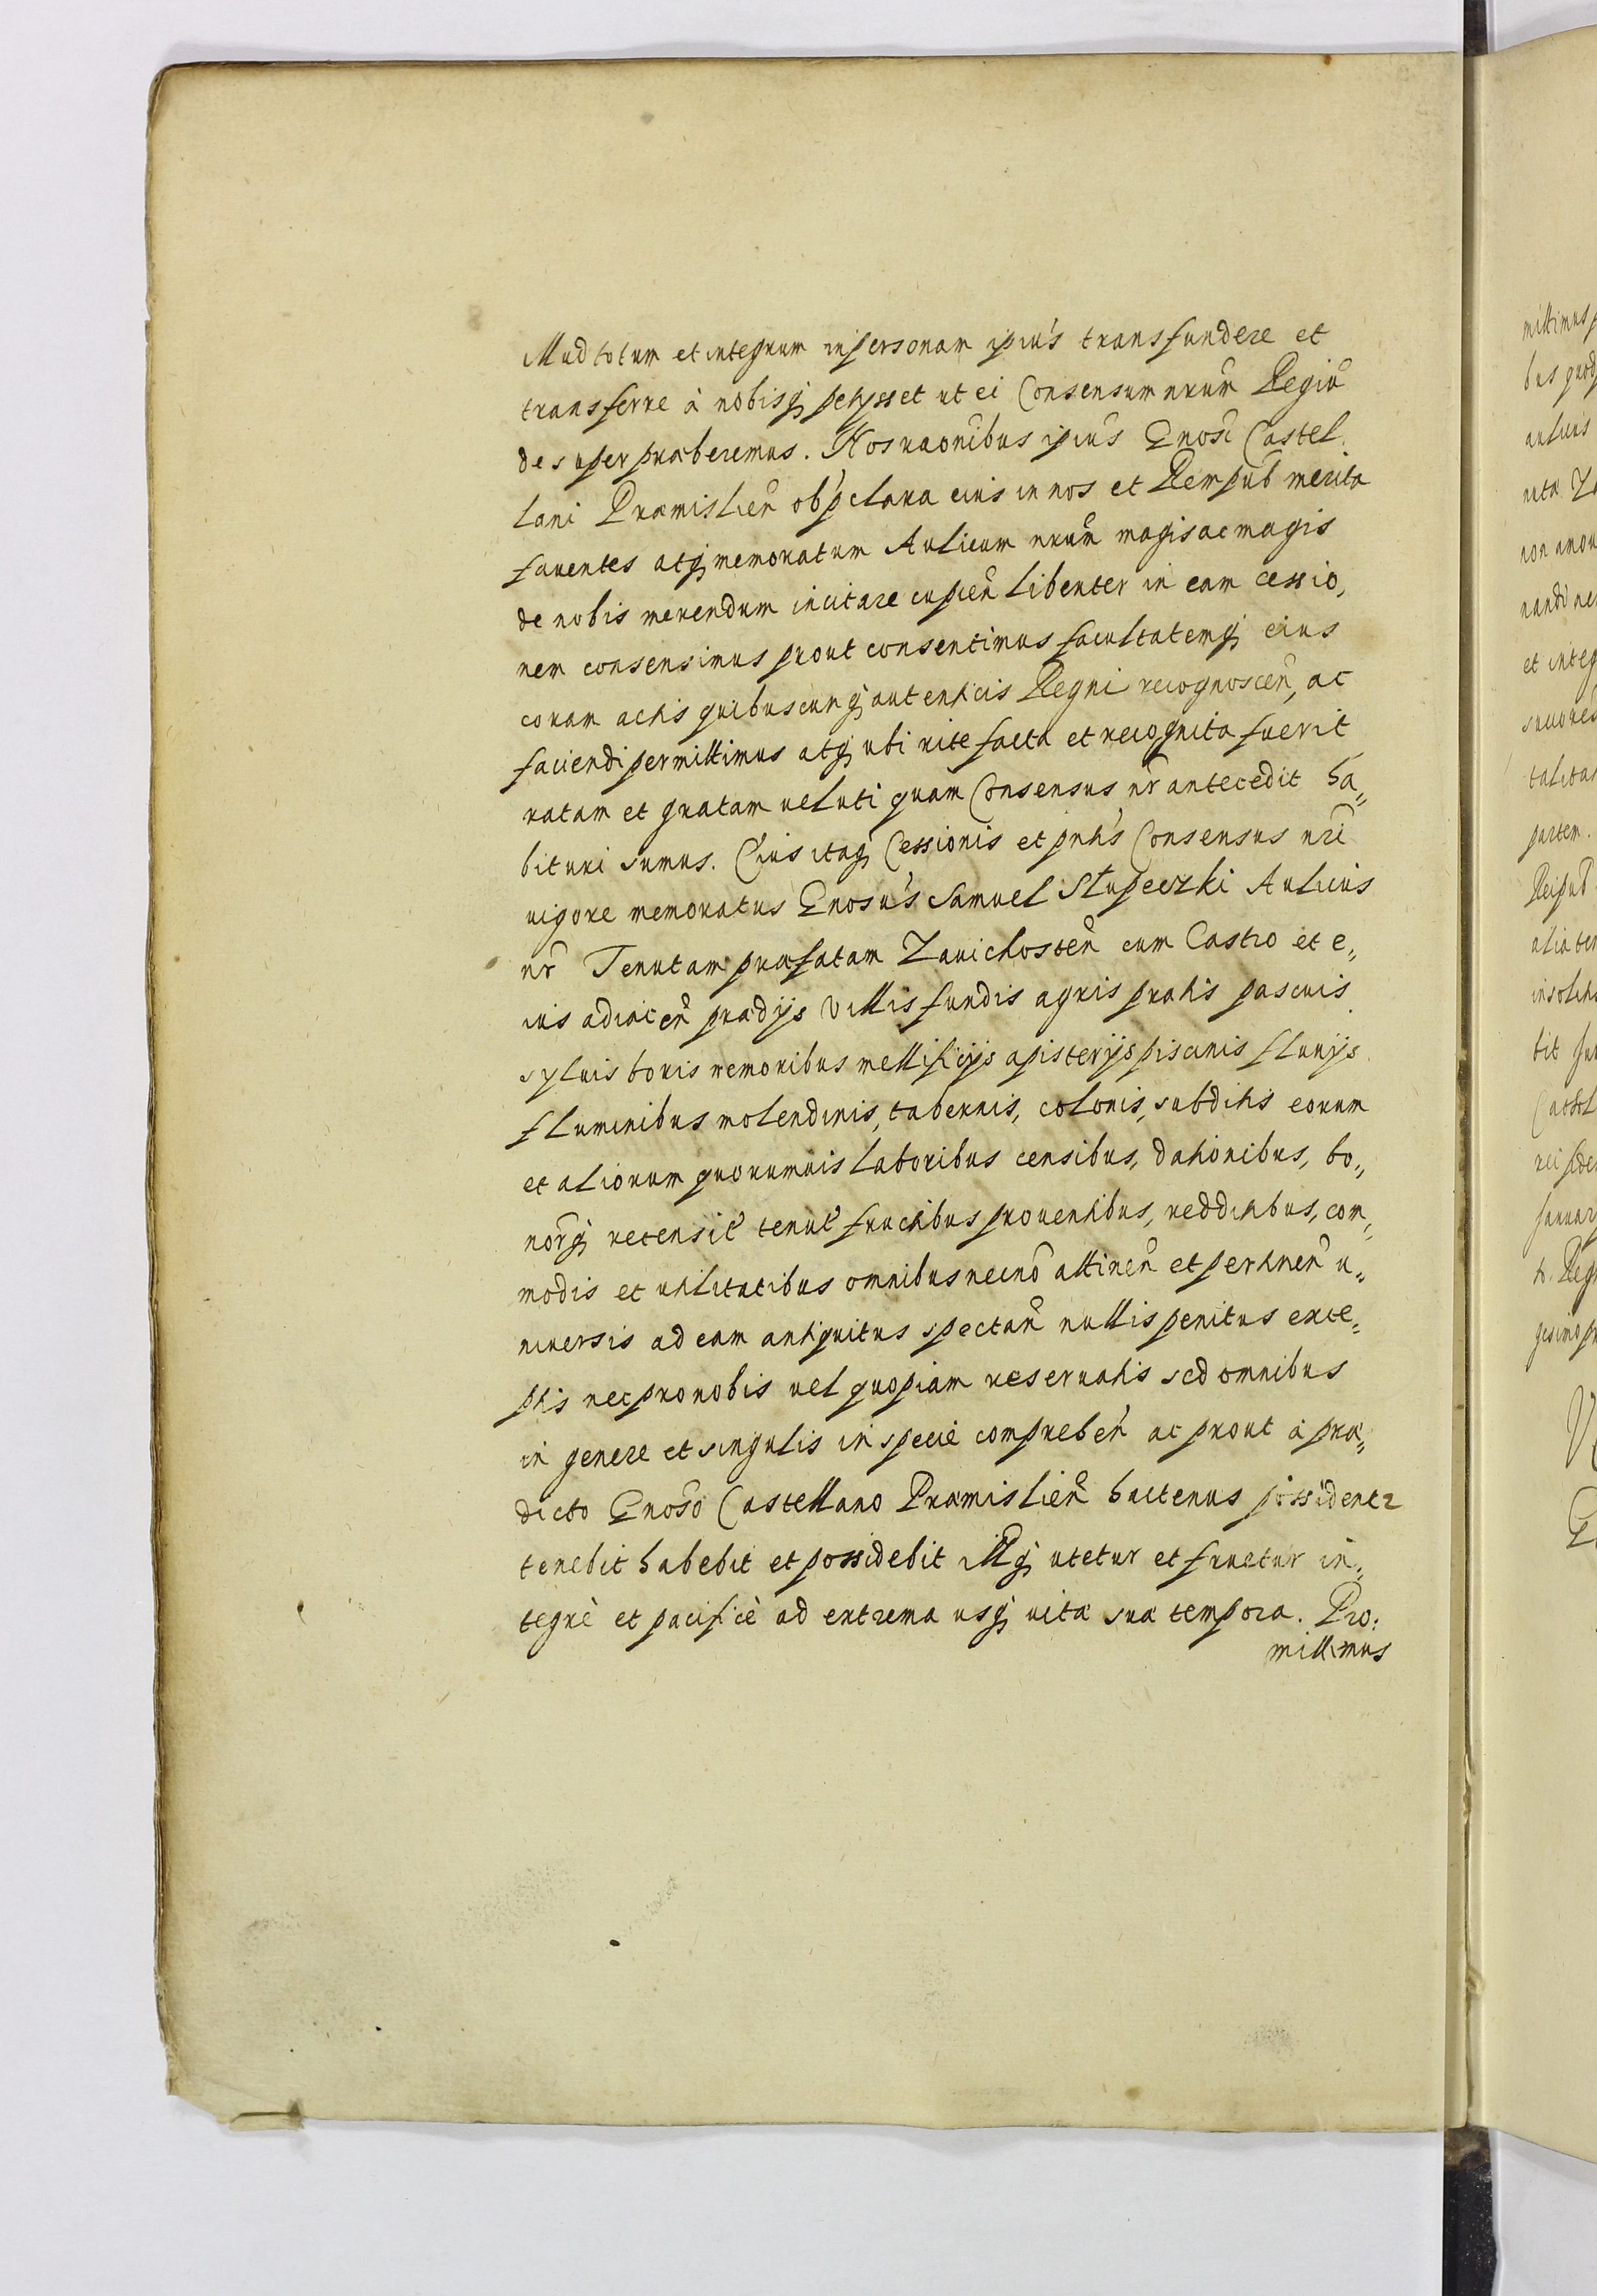 illud totum et integrum in personam ipiu's transfundere et
transferre à nobisq́ petysset ut ei Consensum nrum̃ Regiũ
desuper præberemus. Nos raõnibus ipiu's Gnosi Castel.
lani Præmislieñ ob p̓clara eius in nos et Rempub̃ merita
fauentes atq́ memoratum Aulicum nrum̃ magis ac magis
de nobis merendum incitare cupieñ libenter in eam cessio,
nem consensimus prout consentimus facultatemq́ eius
coram actis quibuscunq́ autenticis Regni recognosceñ, ac
faciendi permittimus atq́ ubi rite facta et recognita fuerit
ratam et gratam veluti quam Consensus nr̃ antecedit ha„
bituri sumus. Cuius itaq́ Cessionis et pnti's Consensus nri̓
uigore memoratus Gnosu's Samuel Słupeczki Aulicus
nr̃ Tenutam præfatam Zauichosteñ cum Castro et e„
ius adiaceñ prædijs Villis fundis agris pratis pascuis
syluis boris nemoribus mellificijs apisterijs piscinis fluvijs
fluminibus molendinis, tabernis, colonis, subditis eorum
et aliorum quorumuis laboribus censibus, dationibus, bo„
norq́ recensit̃ tenut̃ fructibus prouentibus, redditibus, com„
modis et utilitatibus omnibus necnõ attineñ et pertineñ u„
niuersis ad eam antiquitus spectañ nullis penitus exce„
ptis nec pro nobis uel quopiam reseruatis sed omnibus
in genere et singulis in speciè compreheñ ac prout à præ„
dicto Gnosõ Castellano Præmislieñ hactenus possidentr
tenebit habebit et possidebit illq́ utetur et fruetur in„
tegrè et pacificè ad extrema usq́ uitæ suæ tempora. Pro:
mittimus
mittimus
bus quod
aulicus
nandi
et integ
partem.
Reipub
alia
insolitis
bit
rei